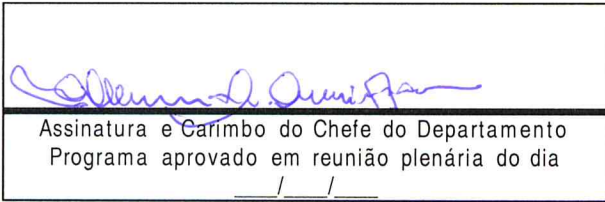 Assinatura e Carimbo do Chefe do Departamento
Programa aprovado em reunião plenária do dia
____/____/____